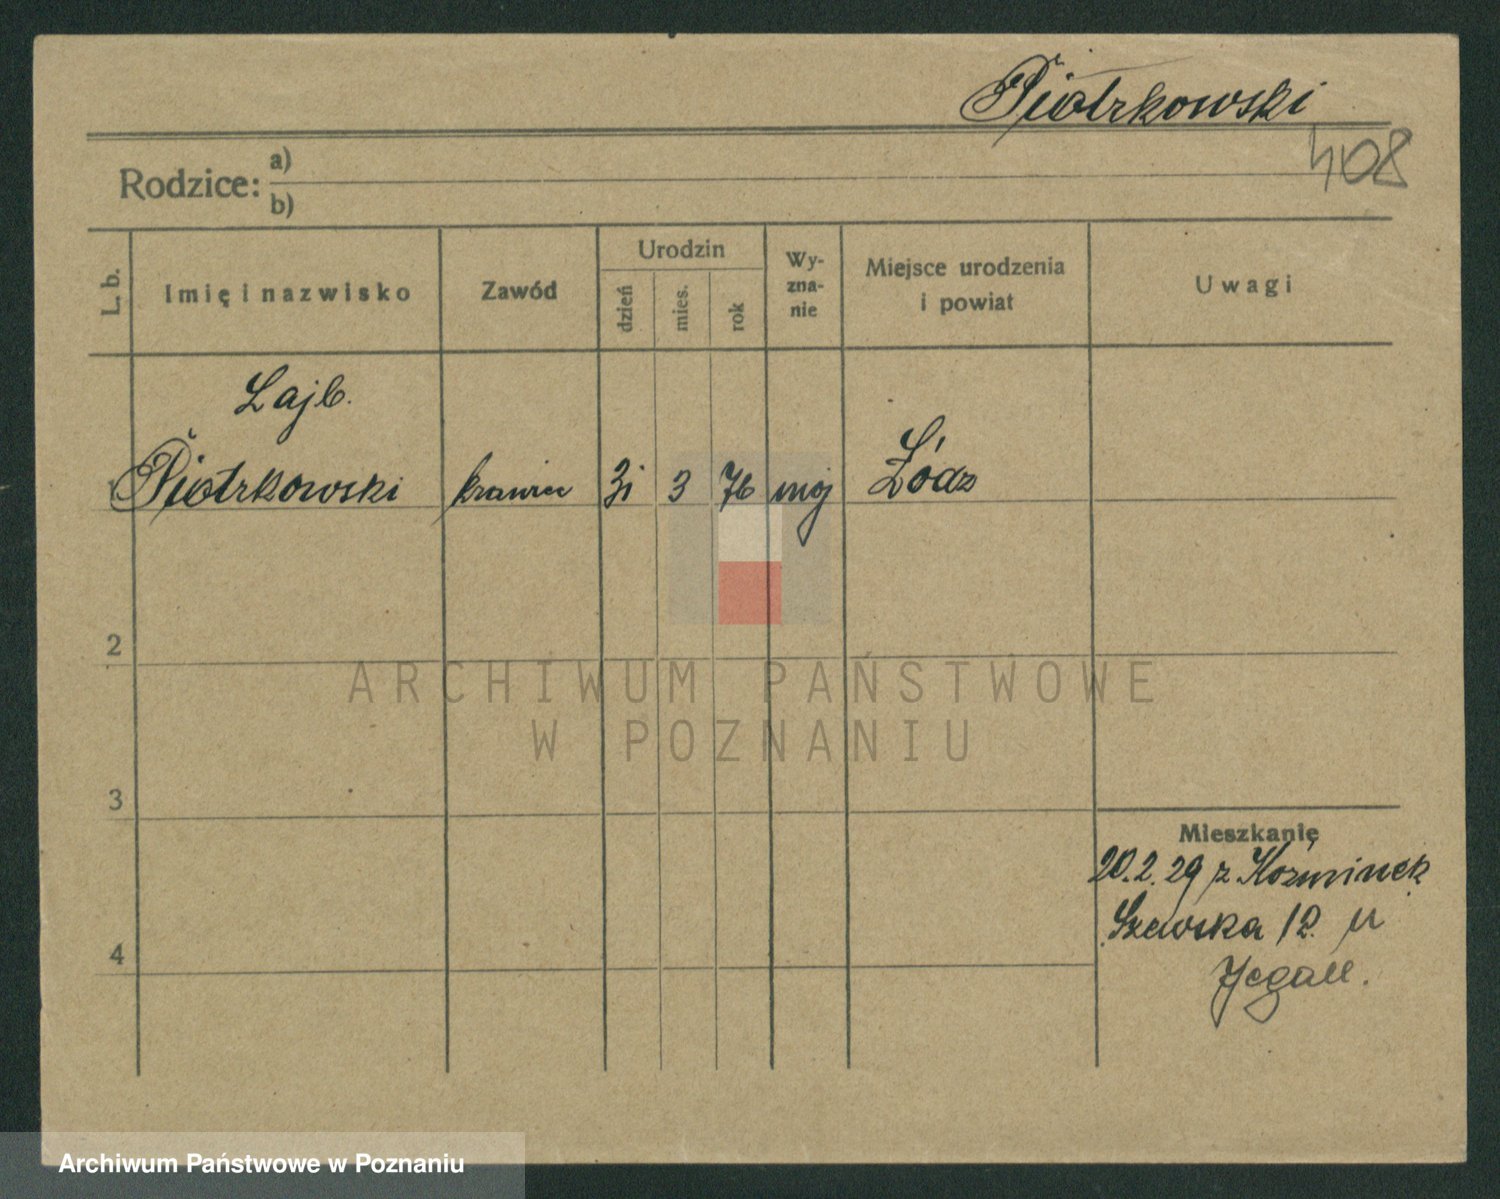 Piotrkowski
408
Rodzice: a)
b)
L. b.
Imię i nazwisko
Zawód
Urodzin
dzień
mies.
rok
Wy-
zna-
nie
Miejsce urodzenia
i powiat
Uwagi
Lajb.
1 Piotrkowski krawiec 31 3 76 moj Łódz
2
ARCHIWUM PAŃSTWOWE
W POZNANIU
3
Mieszkanie
20.2.29 z Koźminek
4 Szewska 12. u
Archiwum Państwowe w Poznaniu